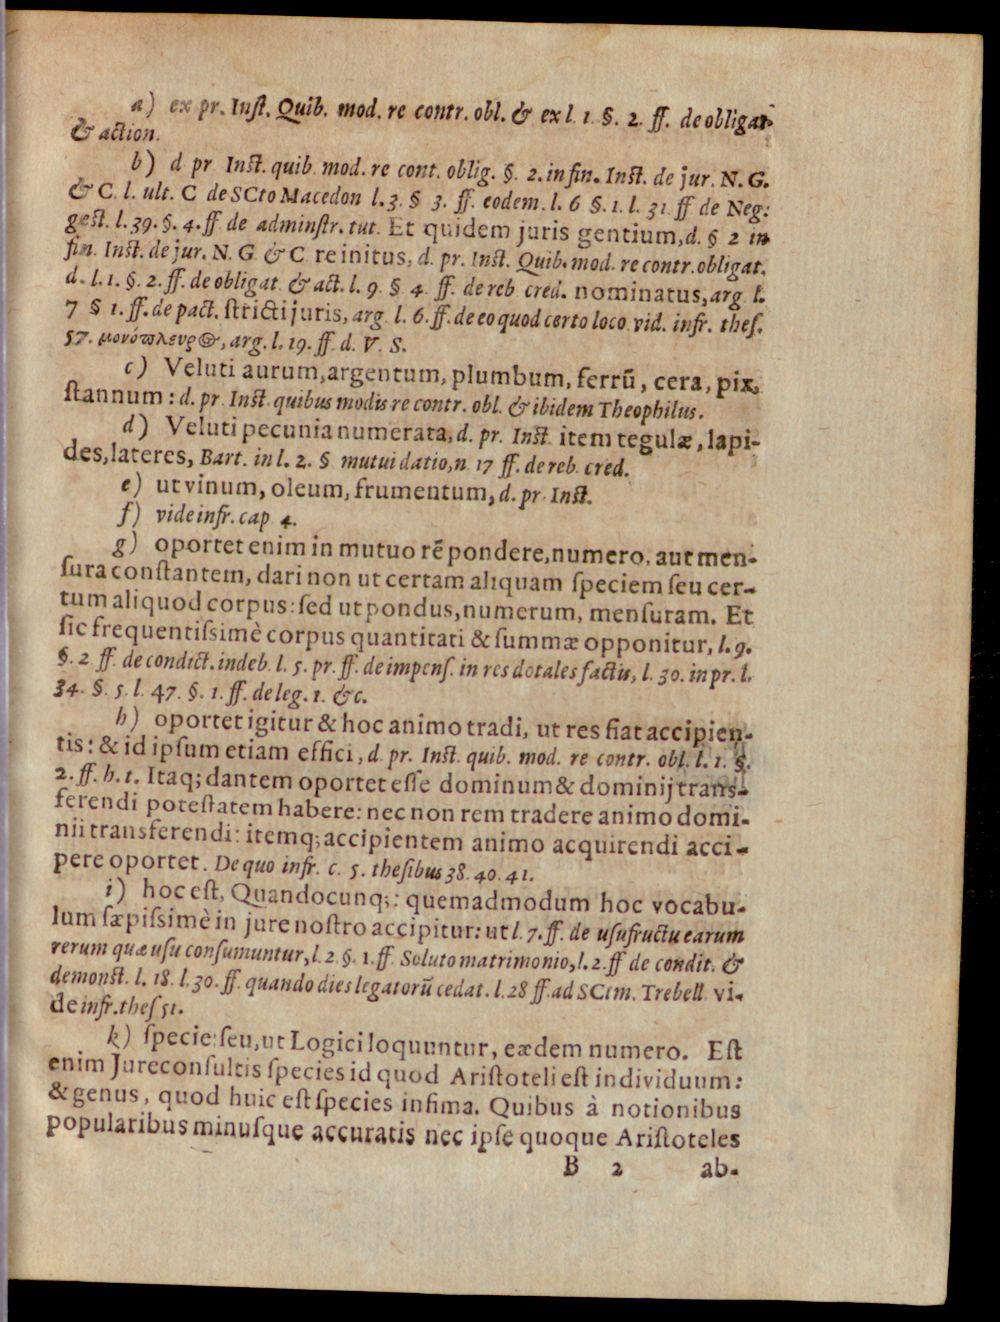 a) ex pr. Inſt. Quib. mod. re contr. obl. & ex l. 1. §. 2. ff. de obligat.
& action.
b) d pr Inst. quib. mod. re cont. oblig. §. 2. in fin. Inst. de jur. N. G.
& C. l. ult. C de SCto Macedon l. 3. § 3. ff. eodem. l. 6 §. 1. l. 31 ff de Neg:
gest. l. 39. §. 4. ff de adminſtr. tut. Et quidem juris gentium, d. § 2 in
fin. Inst. de jur. N. G. & C re initus, d. pr. Inst. Quib. mod. re contr. obligat.
d. l. 1. §. 2. ff. de obligat & act. l. 9. § 4. ff. de reb cred. nominatus, arg l.
7 § 1. ff. de pact. ſtricti juris, arg. l. 6. ff. de eo quod certo loco vid. infr. theſ.
57. μονόπλευρ@, arg. l. 19. ff. d. V. S.
c) Veluti aurum, argentum, plumbum, ferrū, cera, pix,
ſtannum: d. pr. Inst. quibus modis re contr. obl. & ibidem Theophilus.
d) Veluti pecunia numerata, d. pr. Inst. item tegulæ, lapi-
des, lateres, Bart. in l. 2. § mutui datio, n 17 ff. de reb. cred.
e) ut vinum, oleum, frumentum, d. pr. Inst.
f) vide infr. cap 4.
g) oportet enim in mutuo rē pondere, numero, aut men-
ſura conſtantem, dari non ut certam aliquam ſpeciem ſeu cer-
tum aliquod corpus: ſed ut pondus, numerum, menſuram. Et
ſic frequentiſsimè corpus quantitati & ſummæ opponitur, l. 9.
§. 2 ff. de condict. indeb. l. 5. pr. ff. de impenſ. in res dotales factis, l. 30. in pr. l.
34. §. 5. l. 47. §. 1. ff. de leg. 1. &c.
h) oportet igitur & hoc animo tradi, ut res fiat accipien-
tis: & id ipſum etiam effici, d. pr. Inst. quib. mod. re contr. obl. l. 1. §.
2. ff. h. t. Itaq; dantem oportet eſſe dominum & dominij trans-
ferendi poteſtatem habere: nec non rem tradere animo domi-
nii transferendi: itemq; accipientem animo acquirendi acci-
pere oportet. De quo infr. c. 5. theſibus 38. 40. 41.
i) hoc eſt, Quandocunq;: quemadmodum hoc vocabu-
lum ſæpiſsimè in jure noſtro accipitur: ut l. 7. ff. de uſufructu earum
rerum quæ uſu conſumuntur, l. 2. §. 1. ff. Soluto matrimonio, l. 2. ff de condit. &
demonst. l. 18. l. 30. ff. quando dies legatorū cedat. l. 28 ff. ad SCtm. Trebell. vi-
de infr. theſ 51.
k) ſpecie: ſeu, ut Logici loquuntur, eædem numero. Eſt
enim Jureconſultis ſpecies id quod Ariſtoteli eſt individuum:
& genus, quod huic eſt ſpecies infima. Quibus à notionibus
popularibus minuſque accuratis nec ipſe quoque Ariſtoteles
B 2 ab-